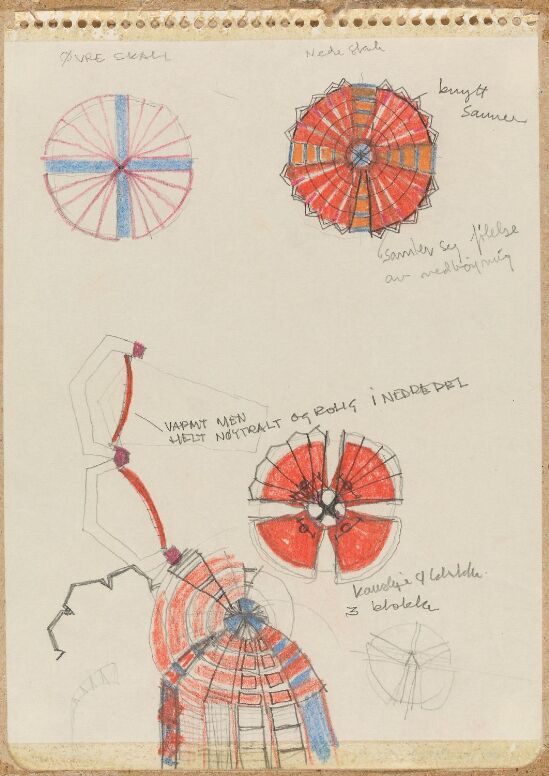 ØVRE SKALL
Nedre skall
knytt
sammen
samler seg følelse
av nedbøyning
VARMT MEN
HELT NØYTRALT OG ROLIG I NEDREDEL
kanskje
3 blokker